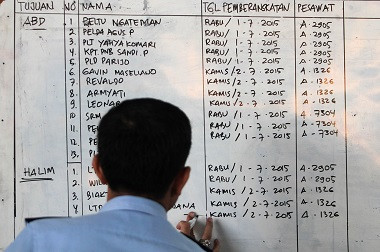 TUJUAN NO NAMA TGL PEMBERANGKATAN PESAWAT
ABD 1 BELTU NGATEMIAN RABU / 1 - 7 - 2015 A - 2905
2 PELDA AGUS P RABU / 1 - 7 - 2015 A - 2905
3 PLT YAHYA KOMARI RABU / 1 - 7 - 2015 A - 2905
4 KPT. PNB SANDI. P RABU / 1 - 7 - 2015 A - 2905
5 PLD PARIJO RABU / 1 - 7 - 2015 A - 2905
6 GAVIN MASELUNO KAMIS / 2 - 7 - 2015 A - 1326
7 REVALDO KAMIS / 2 - 7 - 2015 A - 1326
8 ARMYATI KAMIS / 2 - 7 - 2015 A - 1326
9 LEONAR KAMIS / 2 - 7 - 2015 A - 1326
10 SRM RABU / 1 - 7 - 2015 A - 7304
11 PE RABU / 1 - 7 - 2015 A - 7304
12 PE RABU / 1 - 7 - 2015 A - 7304
13
HALIM 1 RABU / 1 - 7 - 2015 A - 2905
2 RABU / 1 - 7 - 2015 A - 2905
3 KAMIS / 2 - 7 - 2015 A - 1326
4 KAMIS / 2 - 7 - 2015 A - 1326